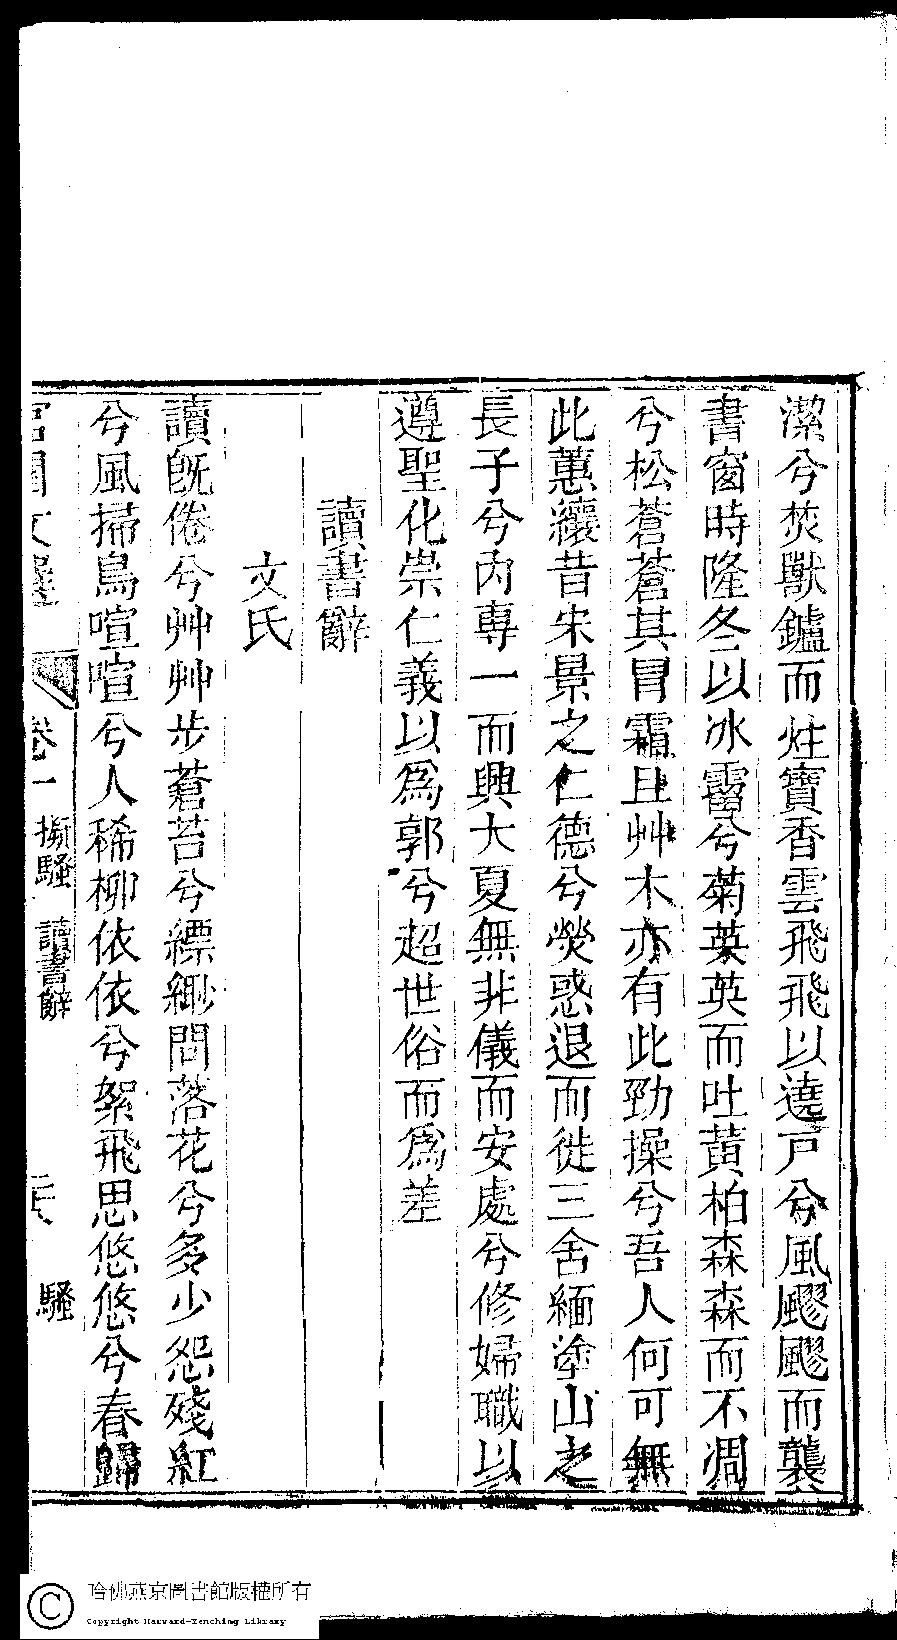 潔兮焚獸鑪而炷寶香雲飛飛以遶戸兮風飂飂而襲
書窗時隆冬以冰霤兮菊英英而吐黃柏森森而不凋
兮松蒼蒼其冒霜且艸木亦有此勁操兮吾人何可無
此蕙纕昔宋景之仁德兮熒惑退而徙三舍緬塗山之
長子兮內專一而興大夏無非儀而安處兮修婦職以
遵聖化崇仁義以爲郭兮超世俗而爲差
讀書辭
文氏
讀旣倦兮艸艸步蒼苔兮縹緲問落花兮多少怨殘紅
兮風掃鳥喧喧兮人稀柳依依兮絮飛思悠悠兮春歸
宮閨文選
卷一
擬騷
讀書辭
騷
哈佛燕京圖書館版權所有
Copyright Harvard-Yenching Library